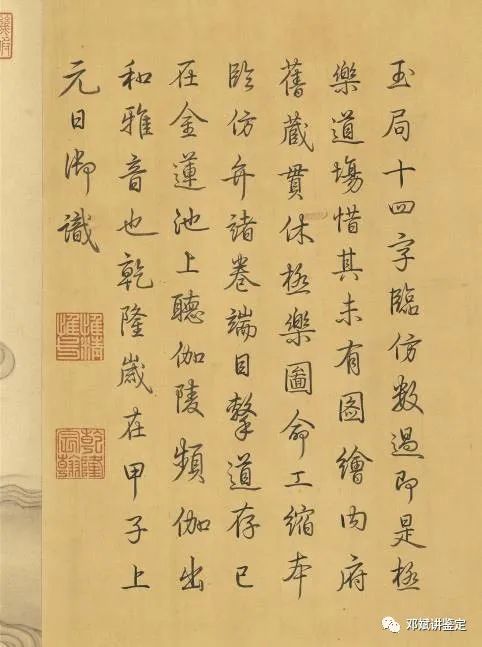 玉局十四字臨仿數過即是極
樂道場惜其未有圖繪内府
舊藏貫休極樂圖命工縮本
臨仿弁諸卷端目擊道存已
在金蓮池上聽伽陵頻伽出
和雅音也乾隆歲在甲子上
元日御識
惟精惟一
乾隆宸翰
邓斌讲鉴定